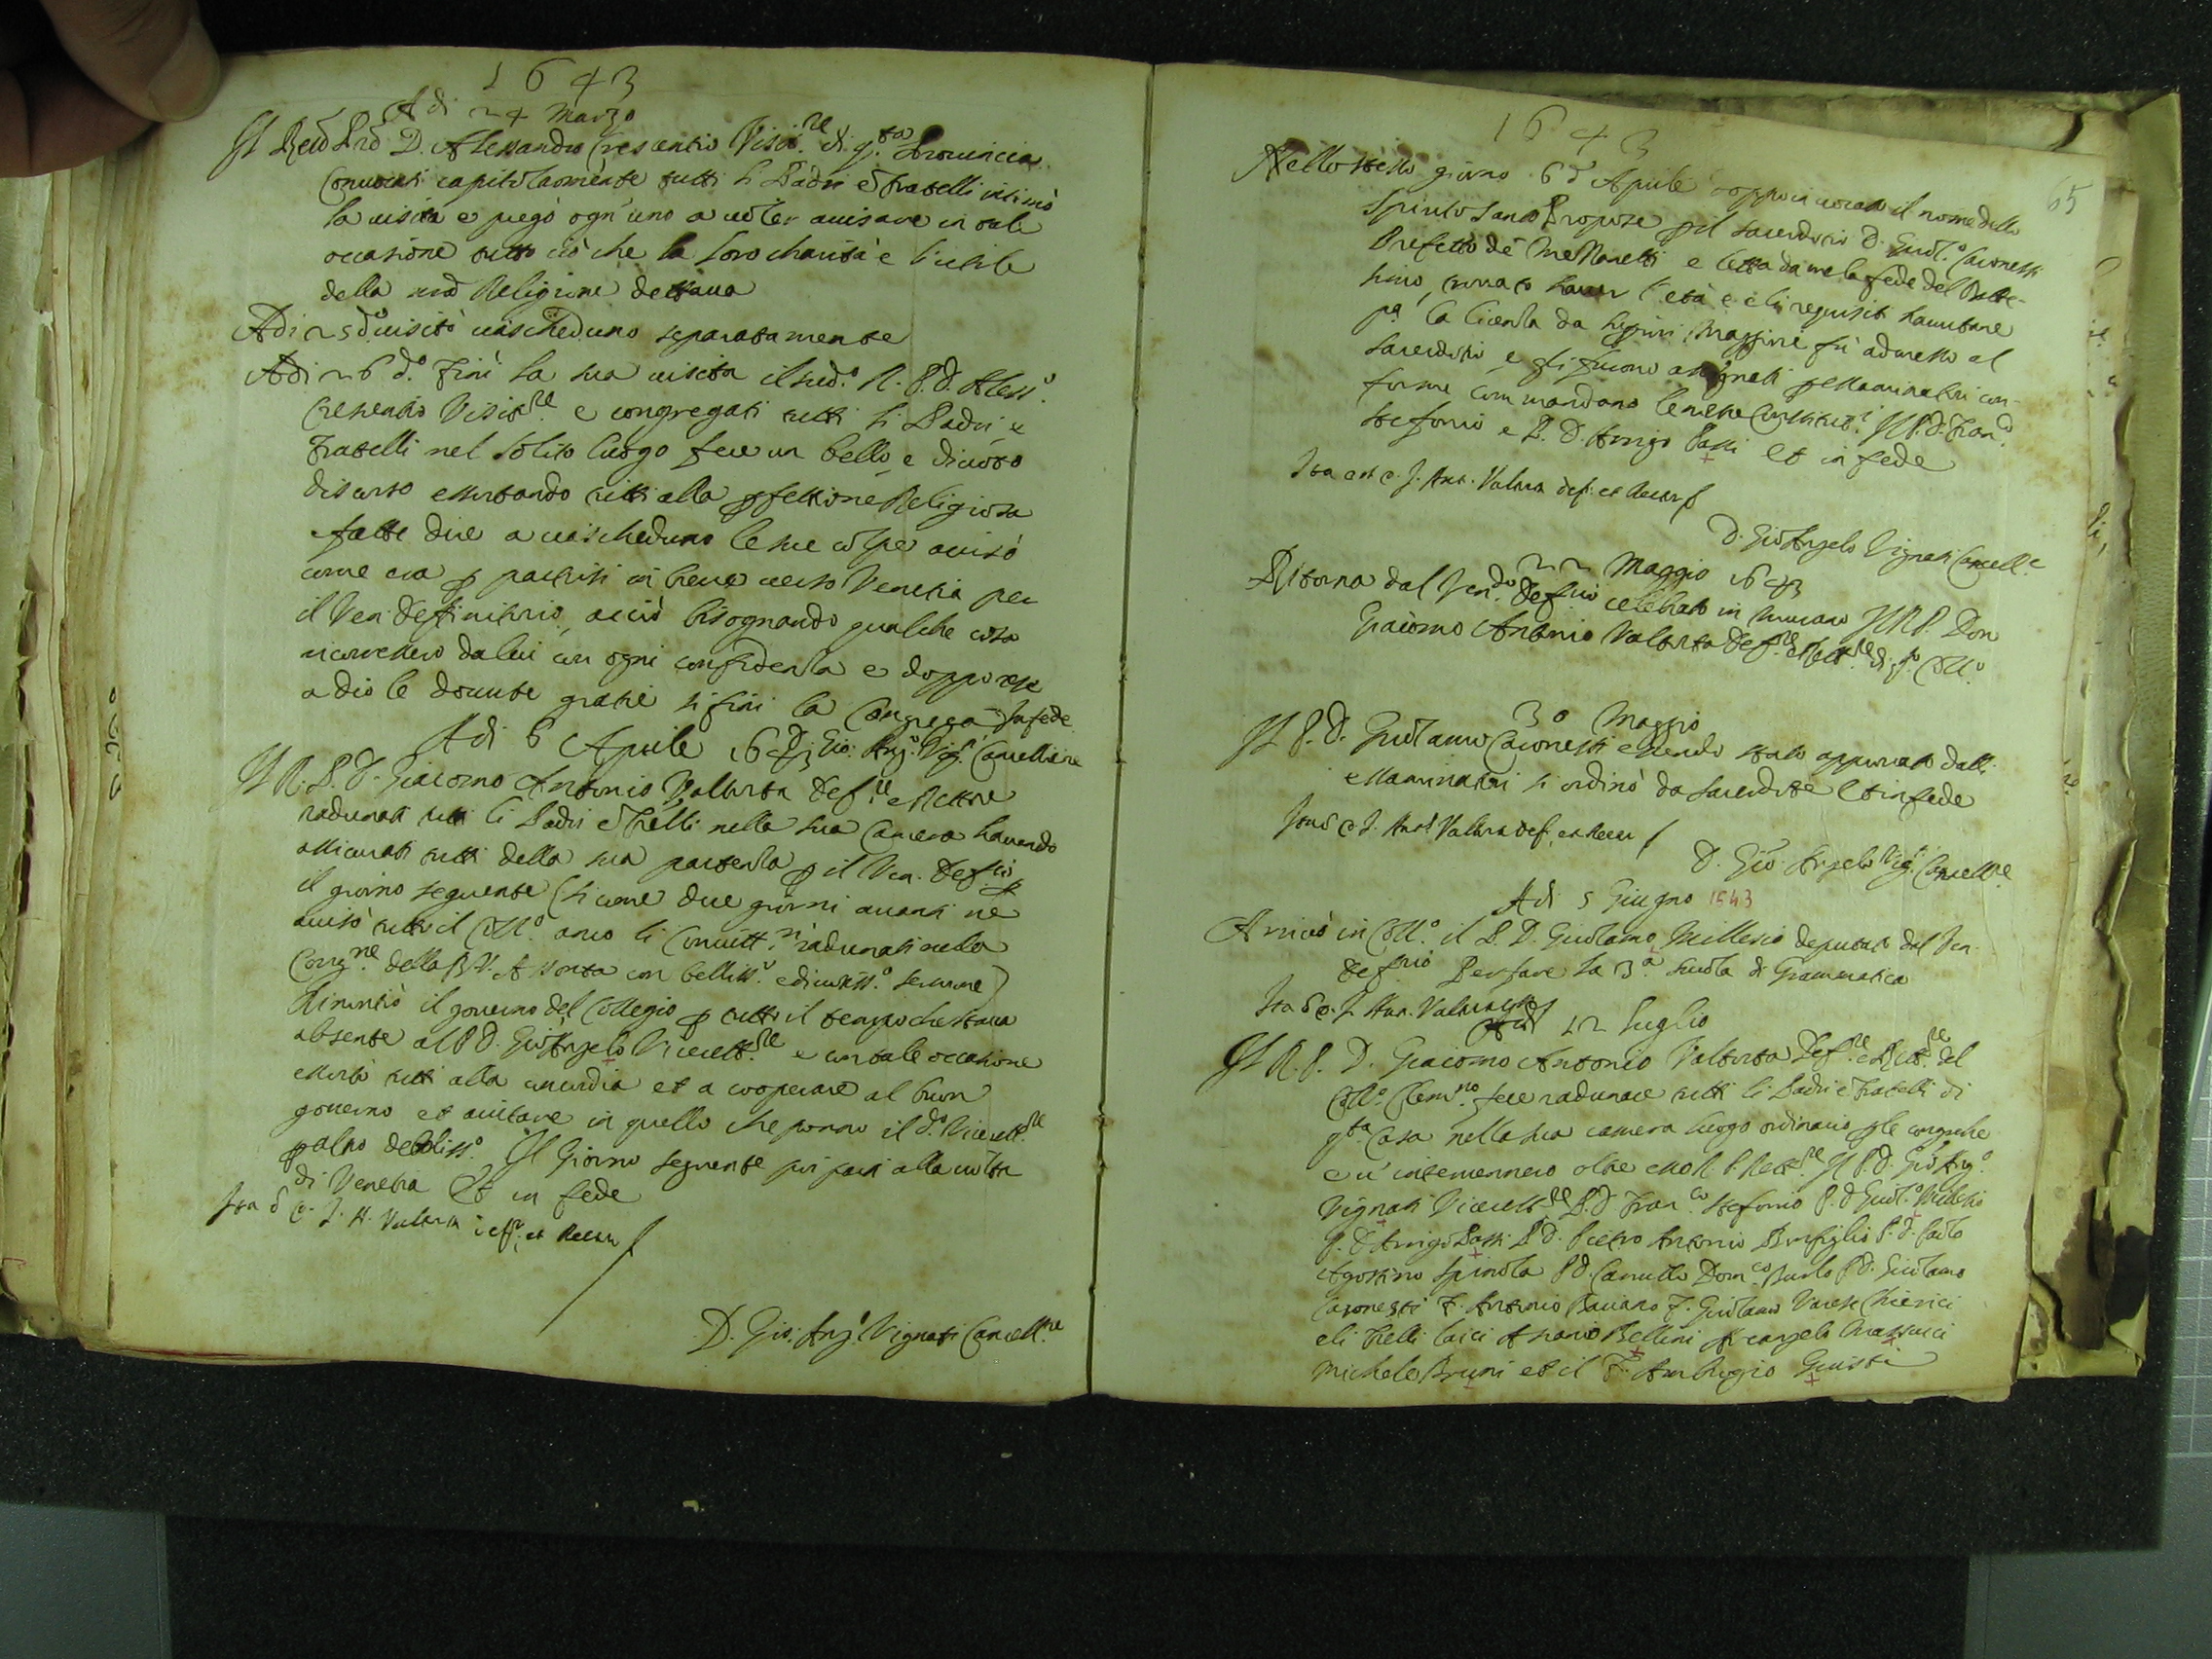 1643
A di 24 Marzo
Il Rev.do P.re D. Alessandro Crescentio Visit.re di q.ta Provincia
Convocati capitolarmente tutti li Padri e fratelli intimò
la visita e pregò ogn'uno a voler avisare in tale
occasione tutto ciò che la loro charità e l'utile
della nra Religione dettava
A di 25 d.o visitò ciascheduno separatamente
A di 26 d.o Finì la sua visita il sud.o R. P. D. Aless.o
Crescentio Visit.re e congregati tutti li Padri e
Fratelli nel solito luogo fece un bello e divoto
discorso essortando tutti alla pfettione Religiosa
fatte dire a ciascheduno le sue colpe avisò
come era p partirsi in breve verso Venetia per
il Ven Deffinitorio, acciò bisognando qualche cosa
ricorressero da lui con ogni confidenza e doppo rese
a dio le dovute gratie si finì la Congrega.ne In fede
D. Gio: Ang.o Vig.ti Cancelliere
A di 6 Aprile 1643
Il R. P. D. Giacomo Antonio Valtorta Def.re e Rettore
radunati tutti li Padri e frelli nella sua Camera havendo
assicurati tutti della sua partenza p il Ven. Deff.rio p
il giorno seguente (si come due giorni avanti ne
avisò tutto il Coll.o anco li Convitt.ri radunati nella
Cong.ne della B. V. Assonta con belliss.o e divotiss.o sermone)
Rinuntiò il governo del Collegio p tutto il tempo che stava
absente al P. D. Gio Angelo Vicerett.re e con tale occasione
essortò tutti alla concordia et a cooperare al buon
governo et aiutare in quello che ponno il d.o Vicerett.re
p altro deboliss.o Il Giorno seguente poi partì alla volta
di Venetia Et in fede
Ita est J. A. Valtorta Deff. et Rector
D. Gio: Ang.o Vignati Cancell.re
1643
65
Nello stesso giorno 6 d' Aprile doppo invocato il nome dello
Spirito Santo Propose p il sacerdotio D. Girol.o Caronesti
Prefetto de Mezzanetti e letta da me la fede del Batte-
simo, trovato haver l'età e li requisiti havutane
p.a la licenza da Sup.ri Maggiori fù admesso al
sacerdotio e gli furono assignati p essaminatori con-
forme commandano le nostre Constitut.i Il P. D. Fran.co
Stefonio e P. D. Arrigo Passi Et in fede
Ita est J. Ant. Valtorta def. et Rector
D. Gio Angelo Vignati Cancell.e
22 Maggio 1643
Ritorna dal Ven.do Deff.rio celebrato in Murano Il R. P. Don
Giacomo Antonio Valtorta Def.re e Rett.re di q.to Coll.o
30 Maggio
Il P. D. Girolamo Caronesti essendo stato approvato dalli
essaminatori si ordinò da sacerdote Et in fede
J. Ant. Valtorta Def. et Rector
D. Gio: Angelo Vig.ti Cancell.re
A di 5 Giugno 1643
Arrivò in Coll.o il P. D. Girolamo Millesio deputato dal Ven.
Deff.rio Per fare la 3.a scuola di Grammatica
Ita est J. Ant. Valtorta
12 Luglio
Il R. P. D. Giacomo Antonio Valtorta Def.re e Rett.re del
Coll.o Clem.no fece radunare tutti li Padri e Fratelli di
q.ta Casa nella sua camera luogo ordinario p le congreghe
e vi intervennero oltre esso R. P. Rett.re Il P. D. Gio Ang.o
Vignati Vicerett.re P. D Fran.co Stefonio P. D Girol.o Millesio
P. D Arrigo Passi P. D. Pietro Antonio Bonfiglio P. D. Paolo
Agostino Spinola P D. Camillo Dom.co P. D. Girolamo
Caronesti F. Antonio F. Girolamo Varese Chierici
e li frelli laici Ascanio Bellini Arcangelo
Michele Bruni et il F. Ambrogio Giusti